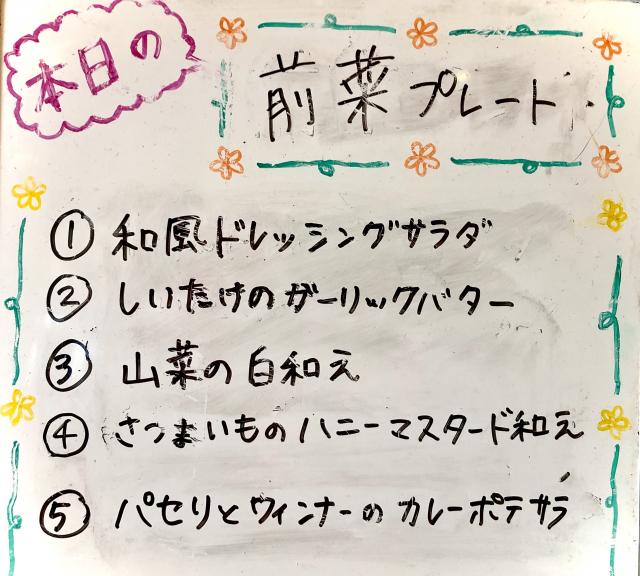 本日の
前菜プレート
① 和風ドレッシングサラダ
② しいたけのガーリックバター
③ 山菜の白和え
④ さつまいものハニーマスタード和え
⑤ パセリとウィンナーのカレーポテサラ